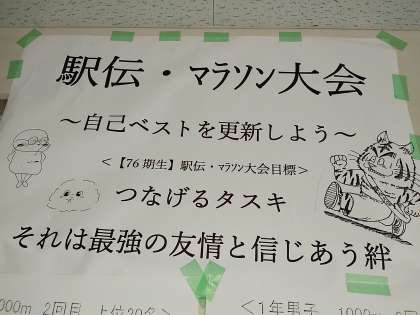 駅伝・マラソン大会
～自己ベストを更新しよう～
<【76期生】駅伝・マラソン大会目標>
つなげるタスキ
それは最強の友情と信じあう絆
000m 2回目 上位20名>
<1年男子 1000m